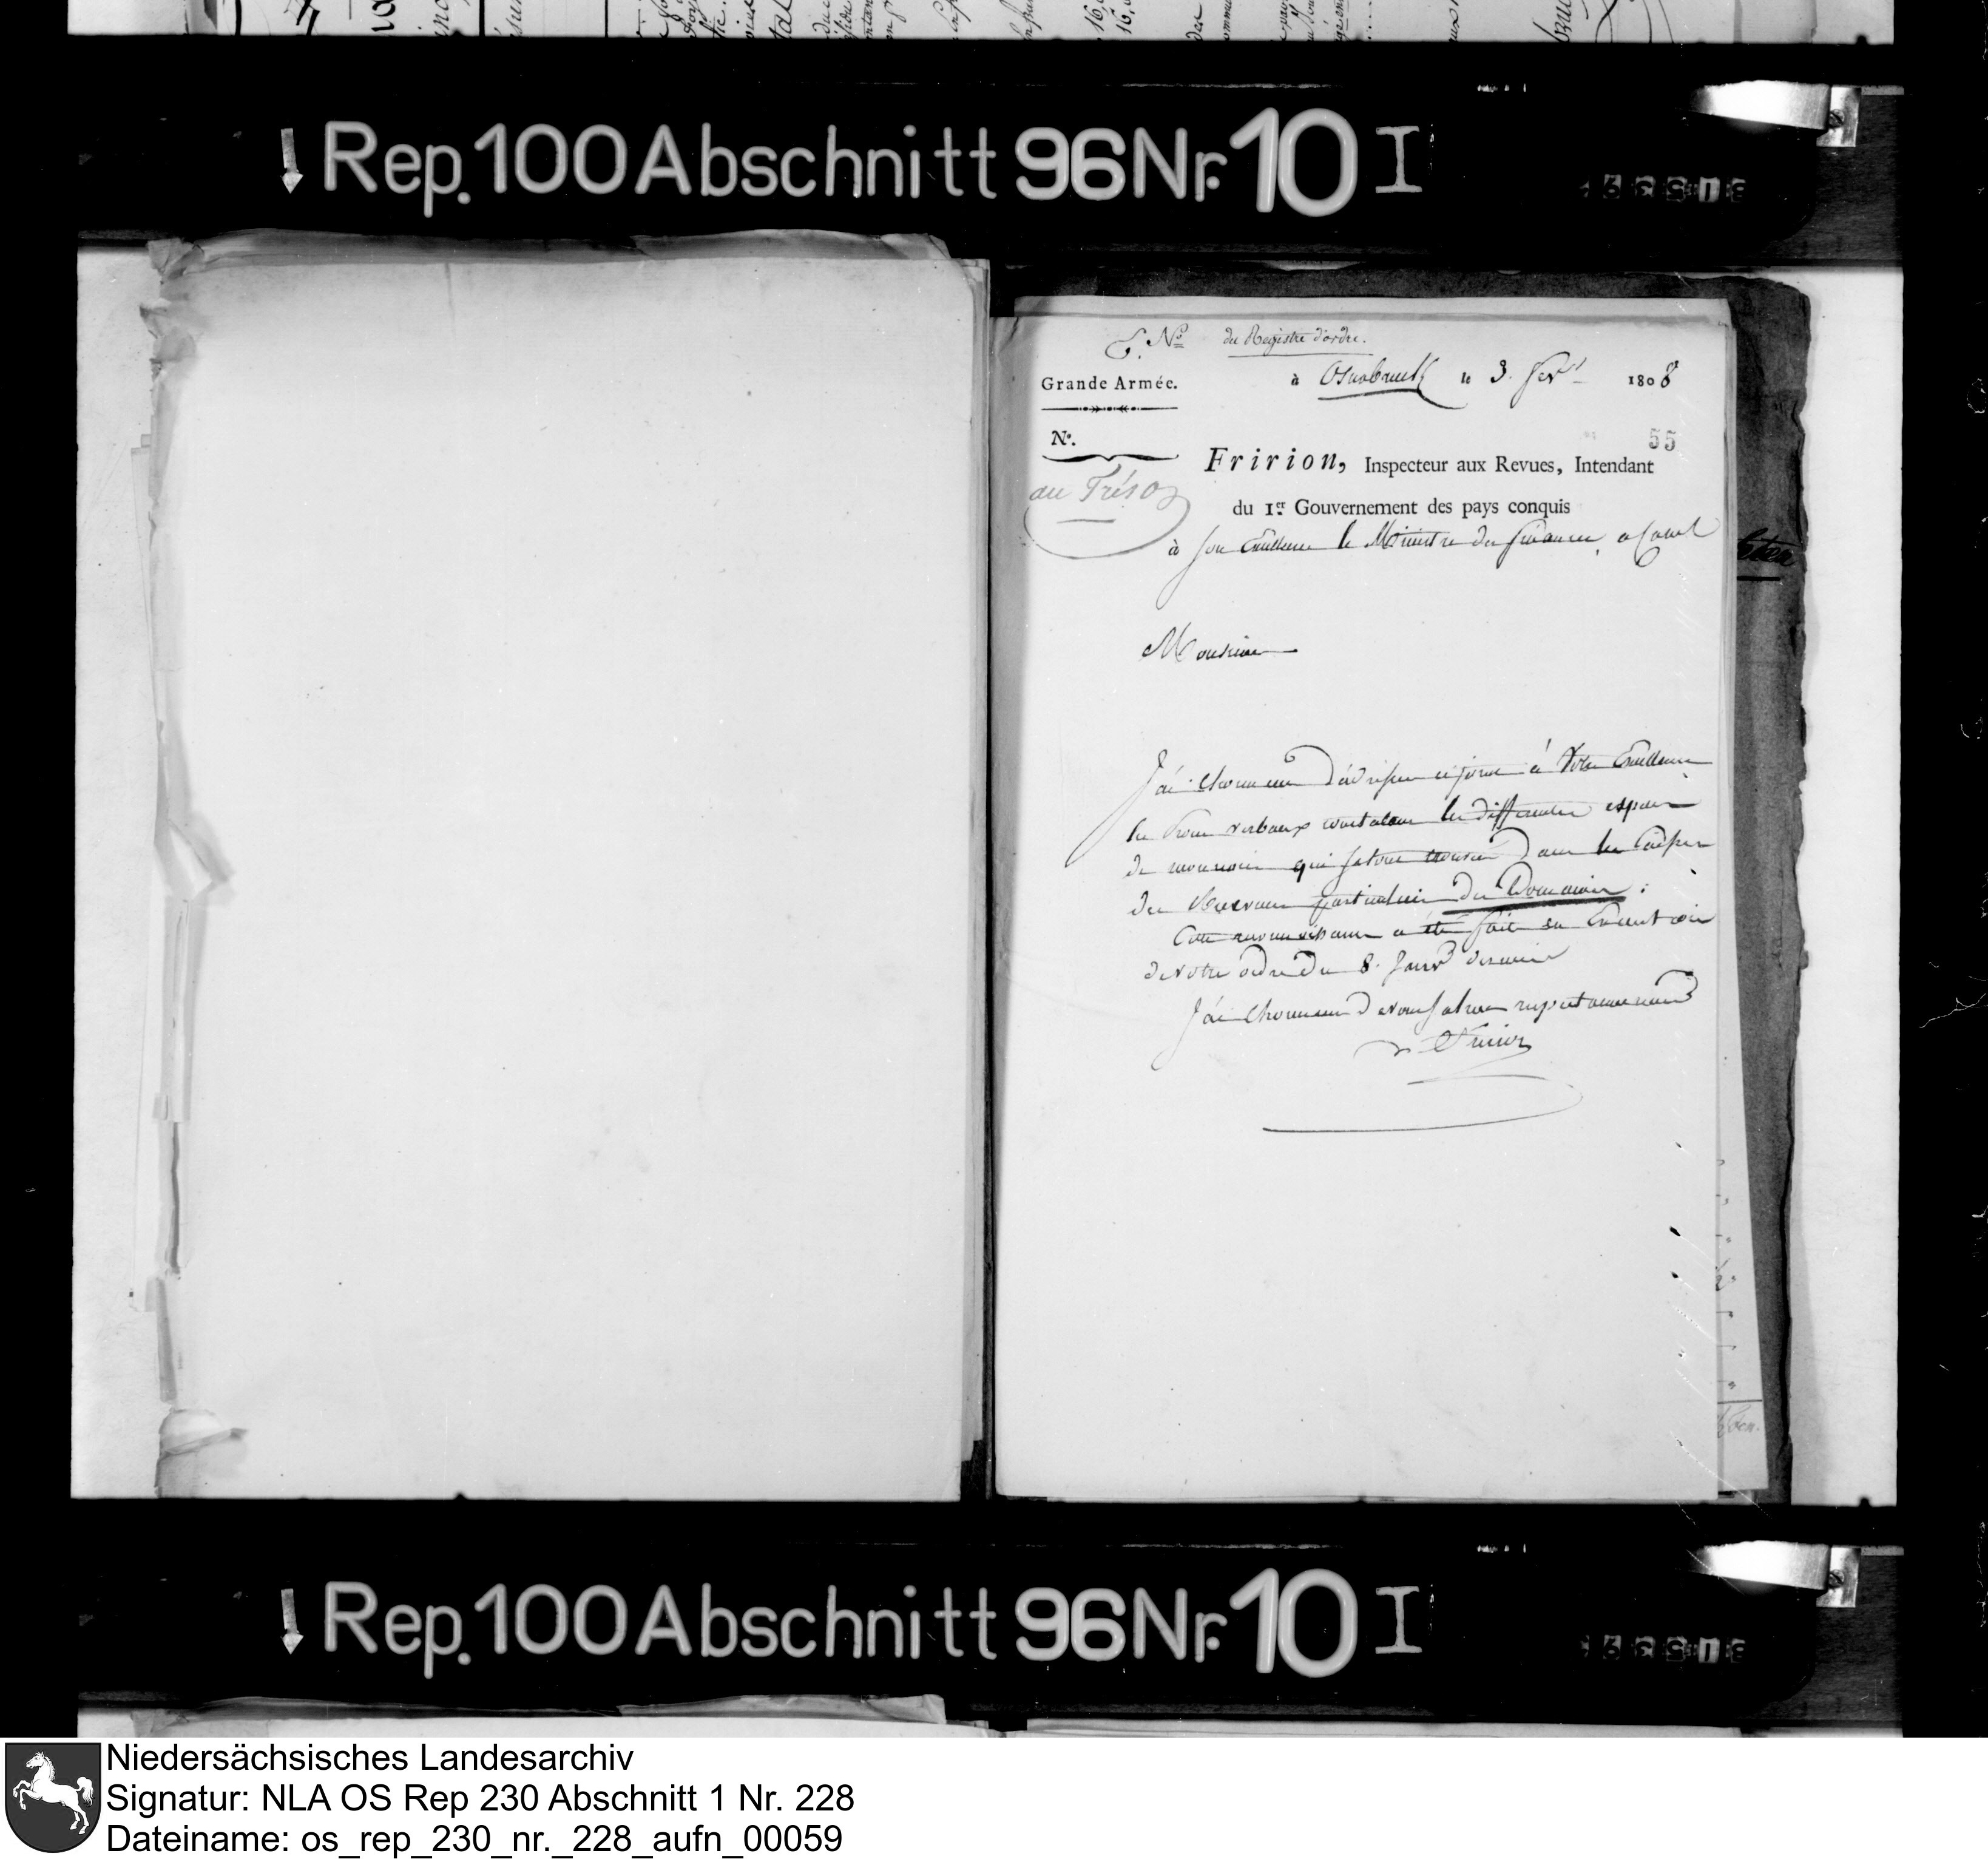 Rep. 100 Abschnitt 96 Nr. 10 I
No du Registre d'ordre.
Grande Armée.
à Osnabruck le 3. fevr 1808
No.
55
au Trésor
Fririon, Inspecteur aux Revues, Intendant
du 1er Gouvernement des pays conquis
à Son Excellence le Ministre des finances, a Cassel
Monsieur
J'ai l'honneur d'adresser ci joint à Votre Excellence
les Procès verbaux constatant les differentes especes
de monnoies qui se sont trouvées dans les Caisses
des Receveurs particuliers des Domaines.
Cette reconnoissance a été faite en Execution
de votre ordre du 8. Janvr dernier
J'ai l'honneur de vous saluer respectueusement
Fririon
Rep. 100 Abschnitt 96 Nr. 10 I
Niedersächsisches Landesarchiv
Signatur: NLA OS Rep 230 Abschnitt 1 Nr. 228
Dateiname: os_rep_230_nr._228_aufn_00059